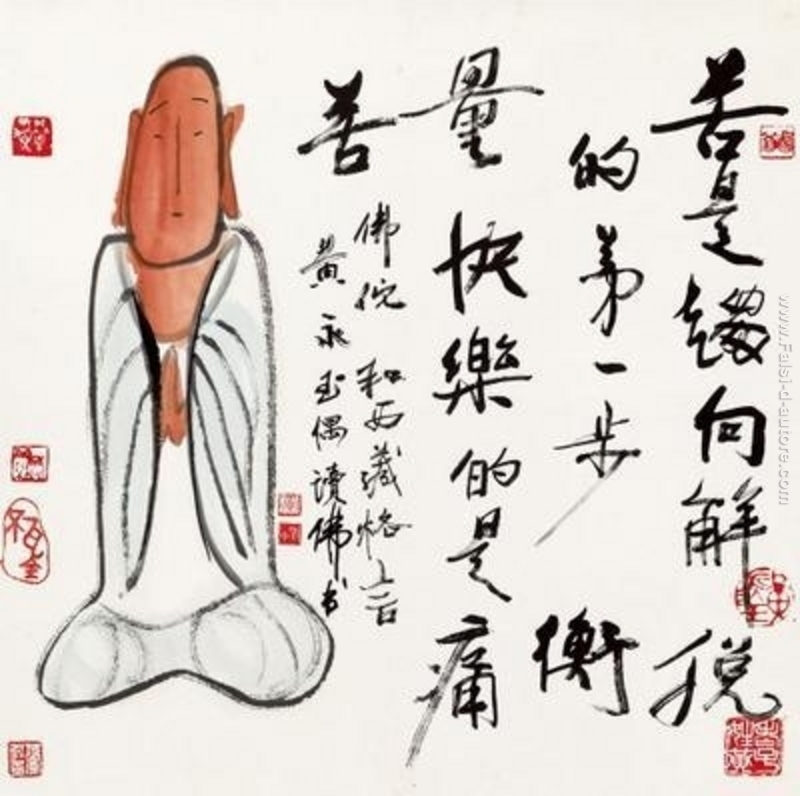 苦是趨向解脱
的第一步 衡
量快樂的是痛
苦
佛偈和西藏格言
黄永玉偶讀佛书
www.Falsi-d-autore.com